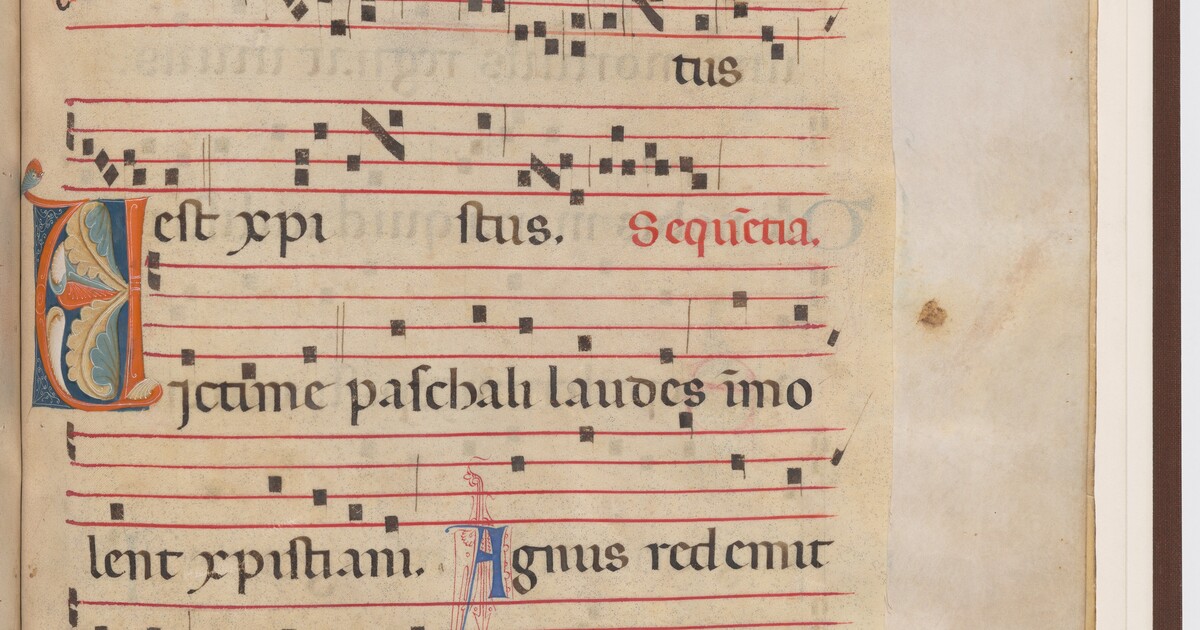 tus
est xpi stus. Sequẽtia.
Vjctime paschali laudes ĩmo
lent xpistiani. Agnus redemit